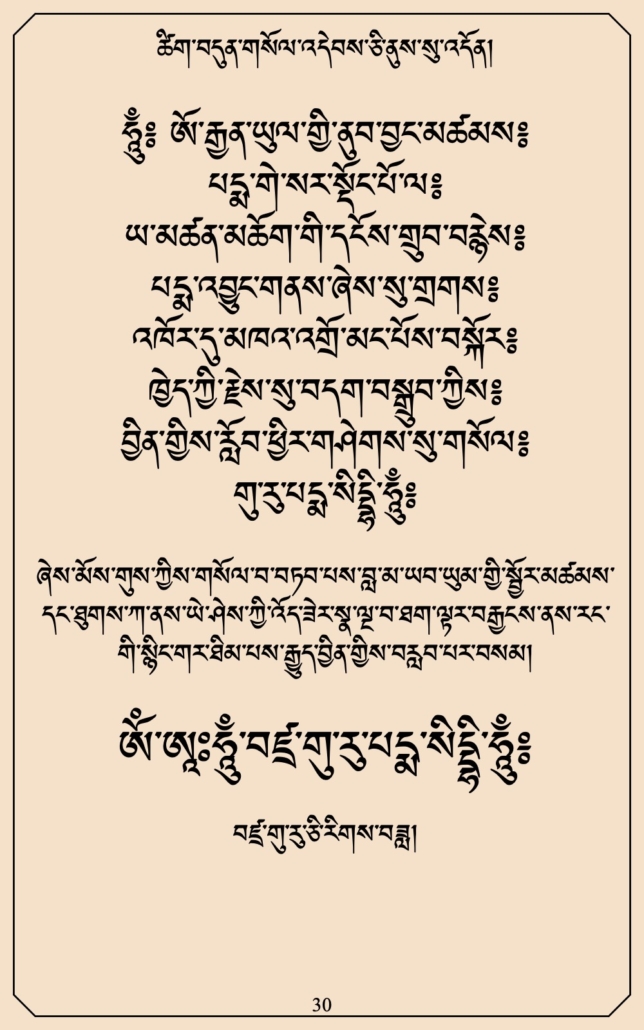 ཚིག་བདུན་གསོལ་འདེབས་ཅི་ནུས་སུ་འདོན།
ཧཱུྃ༔ ཨོ་རྒྱན་ཡུལ་གྱི་ནུབ་བྱང་མཚམས༔
པདྨ་གེ་སར་སྡོང་པོ་ལ༔
ཡ་མཚན་མཆོག་གི་དངོས་གྲུབ་བརྙེས༔
པདྨ་འབྱུང་གནས་ཞེས་སུ་གྲགས༔
འཁོར་དུ་མཁའ་འགྲོ་མང་པོས་བསྐོར༔
ཁྱེད་ཀྱི་རྗེས་སུ་བདག་བསྒྲུབ་ཀྱིས༔
བྱིན་གྱིས་རློབ་ཕྱིར་གཤེགས་སུ་གསོལ༔
གུ་རུ་པདྨ་སིདྡྷི་ཧཱུྃ༔
ཞེས་མོས་གུས་ཀྱིས་གསོལ་བ་བཏབ་པས་བླ་མ་ཡབ་ཡུམ་གྱི་སྦྱོར་མཚམས་
དང་ཐུགས་ཀ་ནས་ཡེ་ཤེས་ཀྱི་འོད་ཟེར་སྣ་ལྔ་བ་ཐག་ལྟར་བརྒྱངས་ནས་རང་
གི་སྙིང་གར་ཐིམ་པས་རྒྱུད་བྱིན་གྱིས་བརླབ་པར་བསམ།
ཨོཾ་ཨཱཿཧཱུྃ་བཛྲ་གུ་རུ་པདྨ་སིདྡྷི་ཧཱུྃ༔
བཛྲ་གུ་རུ་ཅི་རིགས་བཟླ།
30